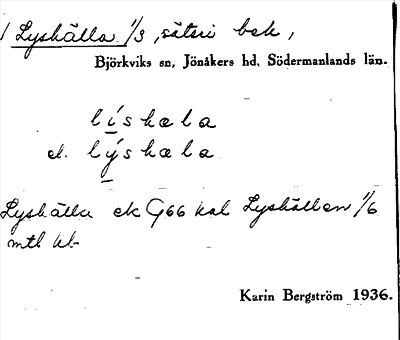 Lyshälla 1/3, säteri bek,
Björkviks sn, Jönåkers hd, Södermanlands län.
líshæla
el. lýshæla
Lyshälla ek G66 kal Lyshällan 1/6
mtl kb
Karin Bergström 1936.